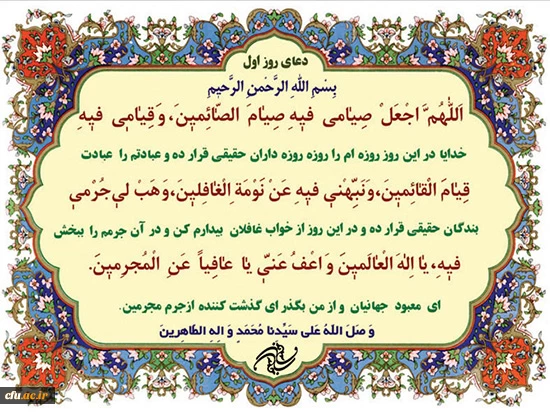 دعای روز اول
بِسْمِ اللهِ الرَّحْمنِ الرَّحیمِ
اَللّهُمَّ اجْعَلْ صِیامی فیهِ صِیامَ الصّائِمینَ، وَ قِیامی فیهِ
خدایا در این روز روزه ام را روزه روزه داران حقیقی قرار ده و عبادتم را عبادت
قِیامَ الْقائِمینَ، وَ نَبِّهْنی فیهِ عَنْ نَوْمَةِ الْغافِلینَ، وَ هَبْ لی جُرْمی
بندگان حقیقی قرار ده و در این روز از خواب غافلان بیدارم کن و در آن جرمم را ببخش
فیهِ، یا اِلهَ الْعالَمینَ وَ اعْفُ عَنّی یا عافِیاً عَنِ الْمُجرِمینَ.
ای معبود جهانیان و از من بگذر ای گذشت کننده ازجرم مجرمین.
وَ صَلَ اللهُ عَلی سَیِّدنا مُحَمَدٍ وَ الِهِ الطّاهِرینَ
cfu.ac.ir